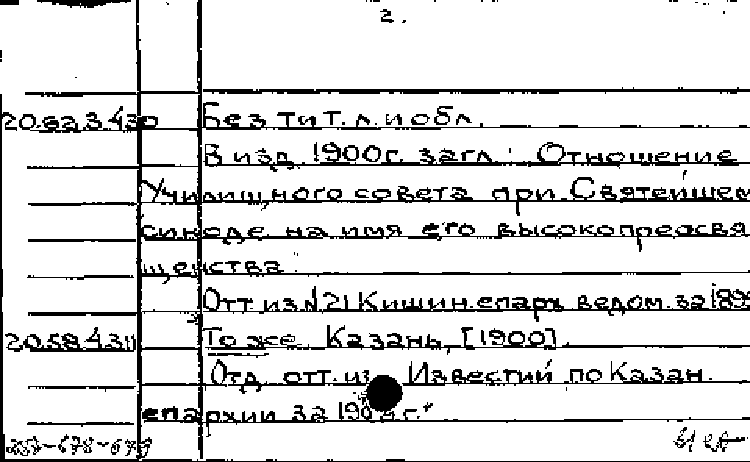 2.
Без тит. л. и обл.
В изд. 1900г. загл.: Отношение
Училищного совета при Святейшем
синоде на имя его высокопреосвя
щенства.
Отт. из №21 Кишин. епарх. ведом. за
То же. Казань, [1900].
Отд. отт. из Известий по Казан.
епархии за